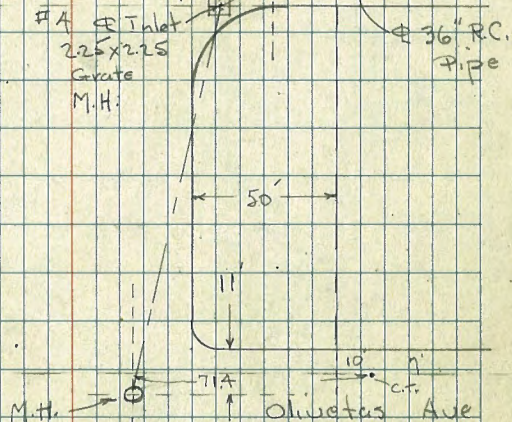 #4 ₵ Inlet
2.25x2.25
Grate
M.H.
₵ 36" R.C.
Pipe
50'
11'
10' 7'
71.4
C.T.
M.H.
Olivetas Ave